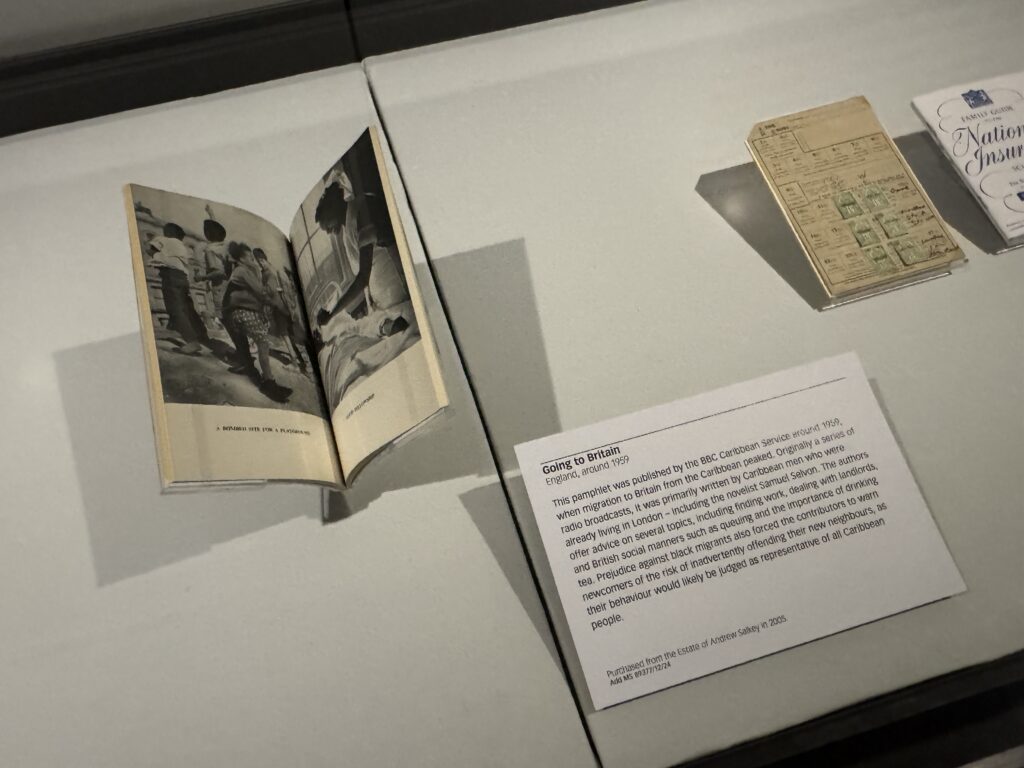 A BOMBED SITE FOR A PLAYGROUND
FAMILY GUIDE
TO THE
Nation
Insur
Going to Britain
England, around 1959
This pamphlet was published by the BBC Caribbean Service around 1959,
when migration to Britain from the Caribbean peaked. Originally a series of
radio broadcasts, it was primarily written by Caribbean men who were
already living in London – including the novelist Samuel Selvon. The authors
offer advice on several topics, including finding work, dealing with landlords,
and British social manners such as queuing and the importance of drinking
tea. Prejudice against black migrants also forced the contributors to warn
newcomers of the risk of inadvertently offending their new neighbours, as
their behaviour would likely be judged as representative of all Caribbean
people.
Purchased from the Estate of Andrew Salkey in 2005.
Add MS 89377/12/24